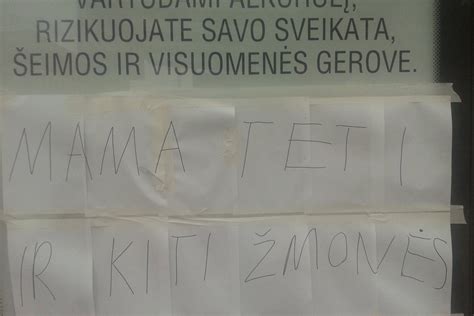 VARTODAMI ALKOHOLĮ,
RIZIKUOJATE SAVO SVEIKATA,
ŠEIMOS IR VISUOMENĖS GEROVE.
MAMA TETI
IR KITI ŽMONĖS